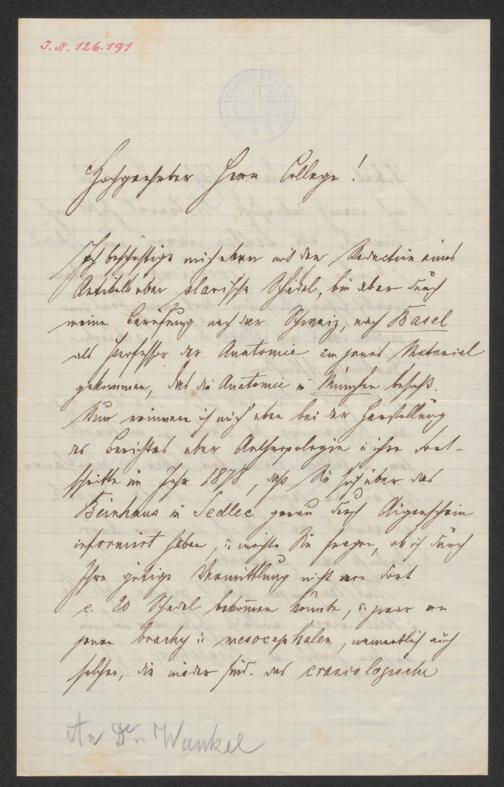 J. N. 126.191
Hochgeehrter Herr College!
Ich beschäftige mich eben mit der Redaction eines
Artikels über slavische Schädel, bin aber durch
meine Berufung nach der Schweiz, nach Basel
als Professor der Anatomie um jenes Material
gekommen, das die Anatomie in München besaß.
Nun erinnere ich mich eben bei der Herstellung
des Berichtes über Anthropologie u ihre Fort-
schritte im Jahr 1878, daß Sie sich über das
Beinhaus in Sedlec genau durch Augenschein
informirt haben, u möchte Sie fragen, ob ich durch
Ihre gütige Vermittlung nicht von dort
c. 20 Schädel bekommen könnte, u zwar von
jenen brachy u mesocephalen, namentlich auch
solcher, die nieder sind. das craniologische
An Dr. Wankel